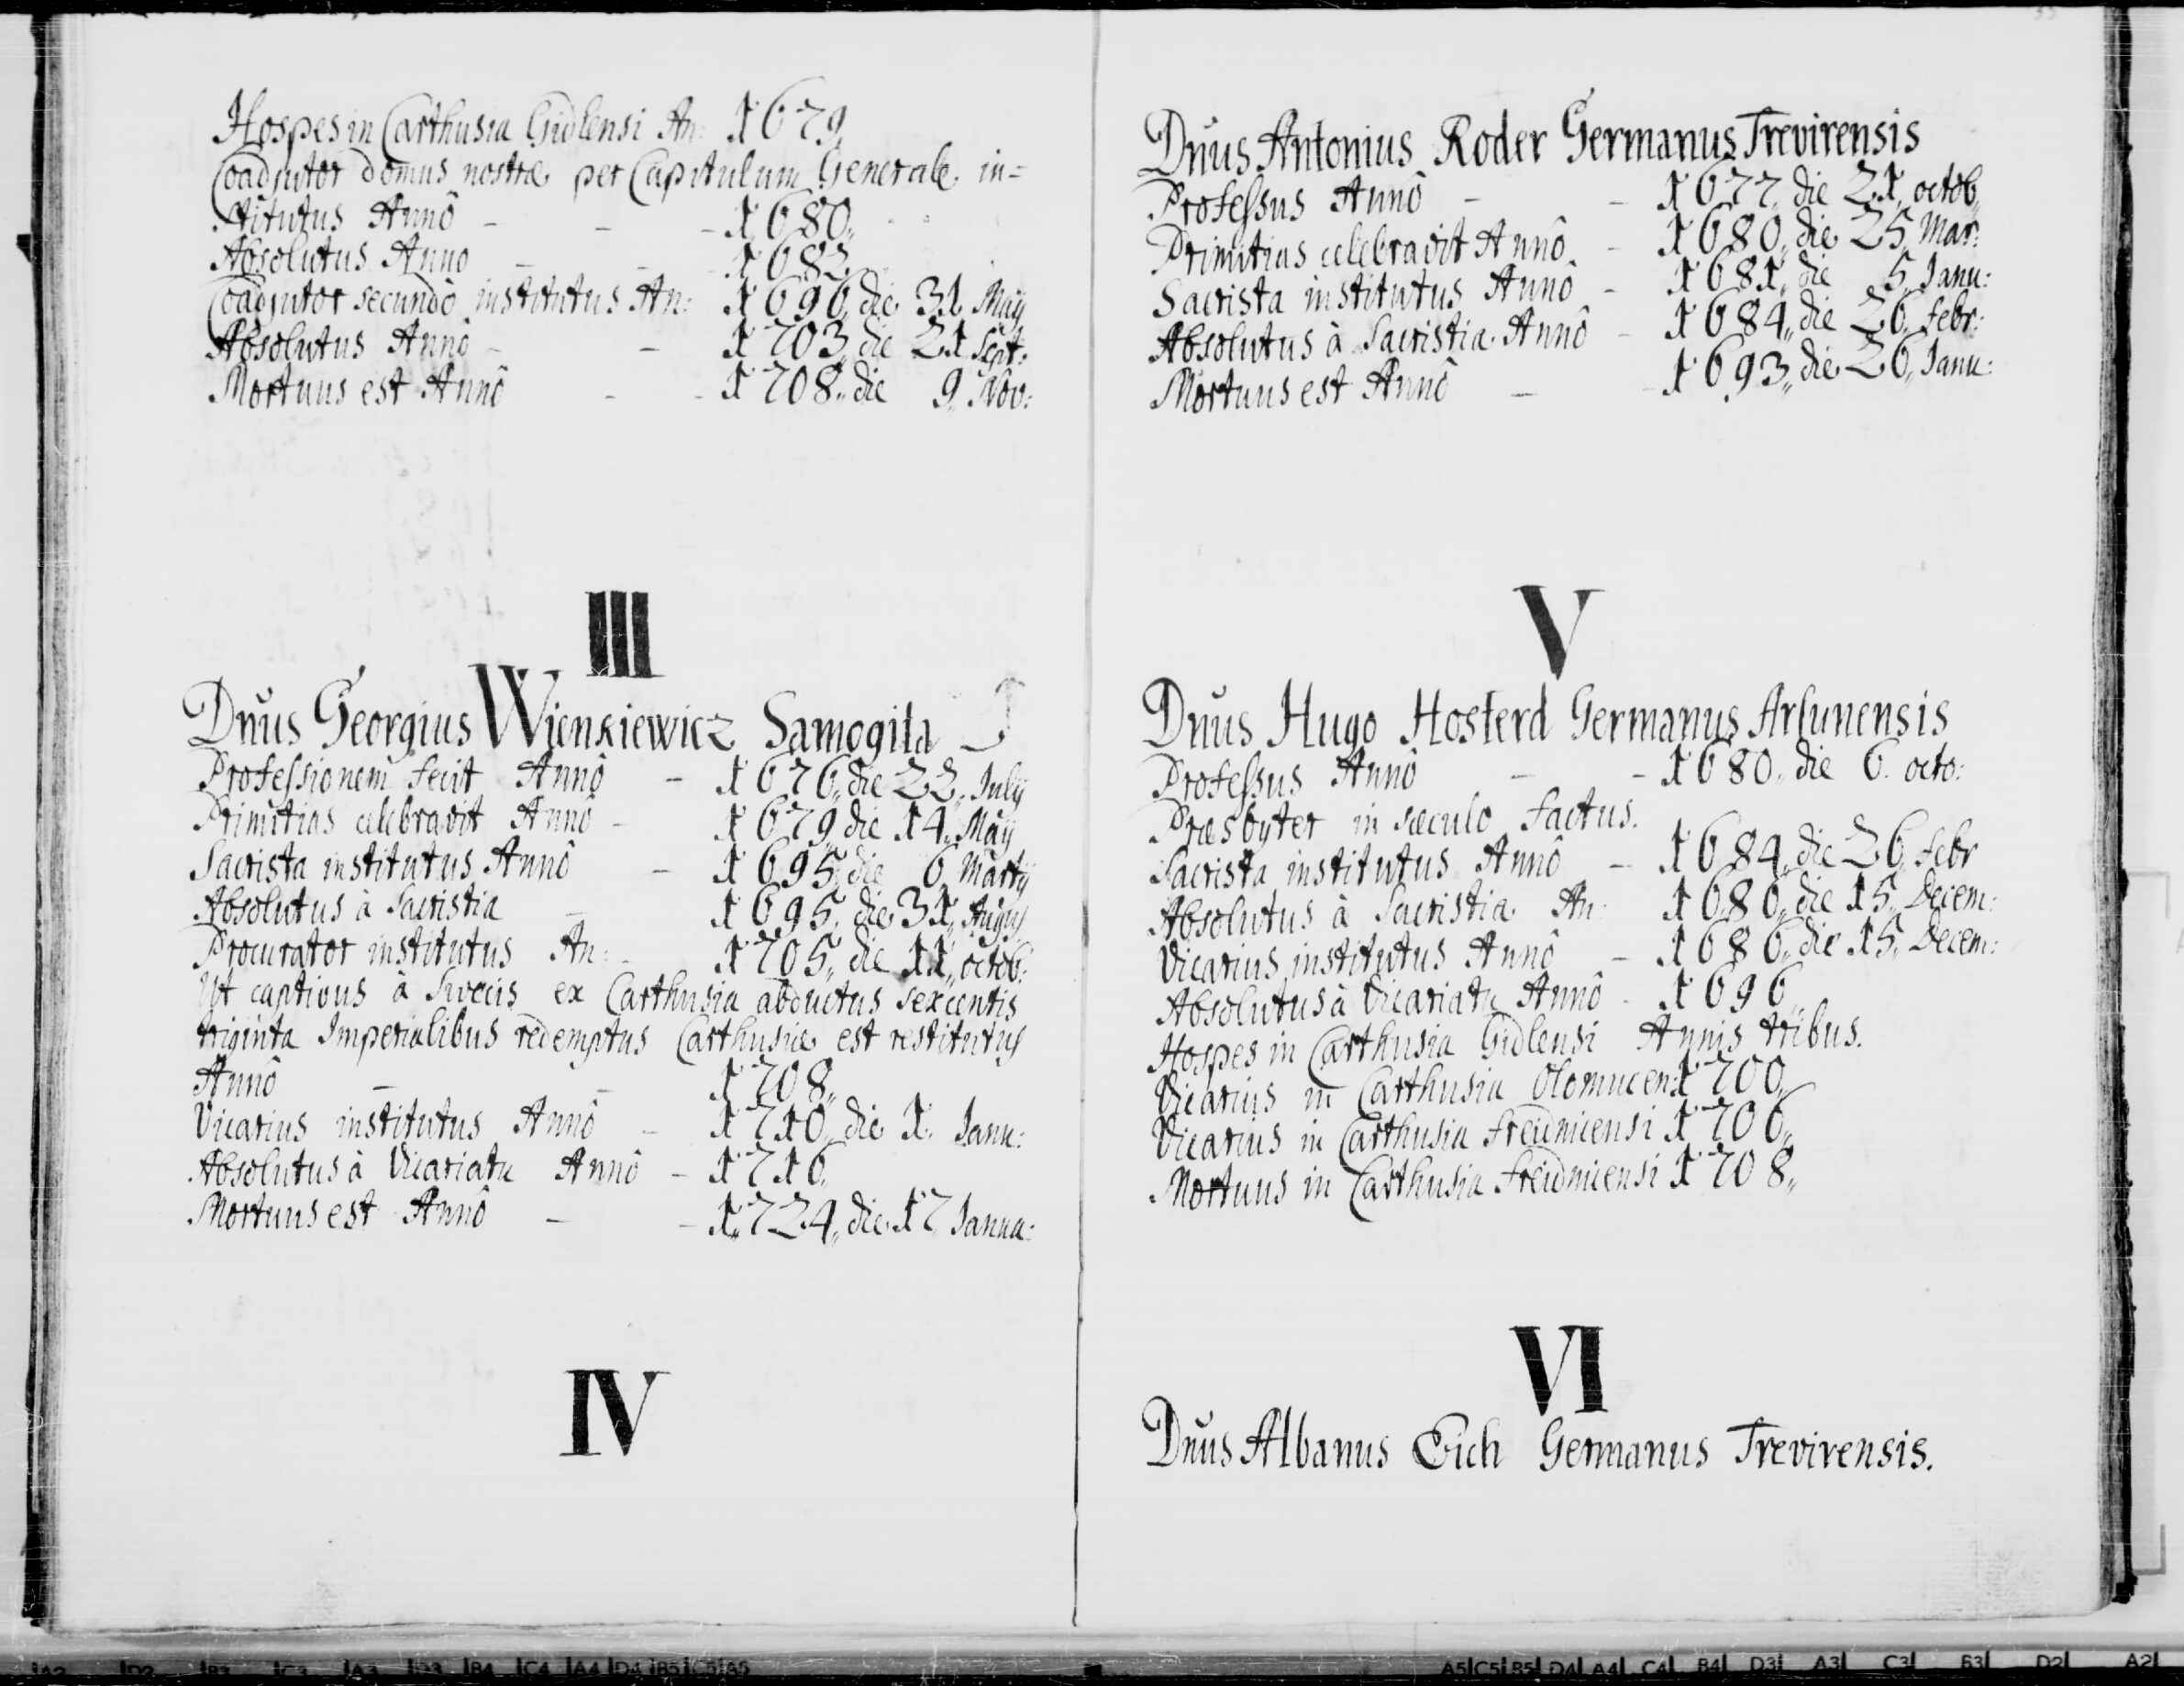 Hospes in Carthusia Gidlensi An: 1679
Coadjutor domus nostræ per Capitulum Generale in=
stitutus Annô - - - 1680,,
Absolutus Anno - - - 1682
Coadjutor secundô institutus An: 1696,, die 31 Maÿ
Absolutus Annô - - 1703,, die 21 Sept:
Mortuus est Annô - - 1708,, die 9,, Nov:
III
Dn̄us Georgius Wienkiewicz Samogita
Professionem fecit Annô - 1676,, die 22,, Julÿ
Primitias celebravit Annô - 1679,, die 14,, Maÿ
Sacrista institutus Annô - 1695,, die 6 Martÿ
Absolutus à Sacristia - 1695,, die 31,, Augus
Procurator institutus An: - 1705,, die 11,, octob:
Ut captivus à Svecis ex Carthusia abductus sexcentis
triginta Imperialibus redemptus Carthusiæ est restitutus
Annô - - 1708,,
Vicarius institutus Annô - 1710,, die 1. Janu:
Absolutus à Vicariatu Annô - 1716,,
Mortuus est Annô - - 1724,, die 17 Janua:
IV
Dn̄us Antonius Roder Germanus Trevirensis
Professus Annô - - 1677,, die 21,, octob,
Primitias celebravit Annô - 1680,, die 25 Mar:
Sacrista institutus Annô - 1681,, die 5,, Janu:
Absolutus à Sacristia Annô - 1684,, die 26,, febr:
Mortuus est Annô - - 1693,, die 26,, Janu:
V
Dn̄us Hugo Hosterd Germanus Arlunensis
Professus Annô - - 1680,, die 6. octo:
Præsbyter in sæculo factus.
Sacrista institutus Annô - 1684,, die 26,, febr
Absolutus à Sacristia An: 1686,, die 15,, Decem:
Vicarius institutus Annô - 1686,, die 15,, Decem:
Absolutus à Vicariatu Annô - 1696,,
Hospes in Carthusia Gidlensi Annis tribus.
Vicarius in Carthusia Olomucen: 1700,,
Vicarius in Carthusia Freudnicensi 1706,,
Mortuus in Carthusia Freudnicensi 1708,,
VI
Dn̄us Albanus Eich Germanus Trevirensis.
A5 C5 B5 D4 A4 C4 B4 D3 A3 C3 B3 D2 A2